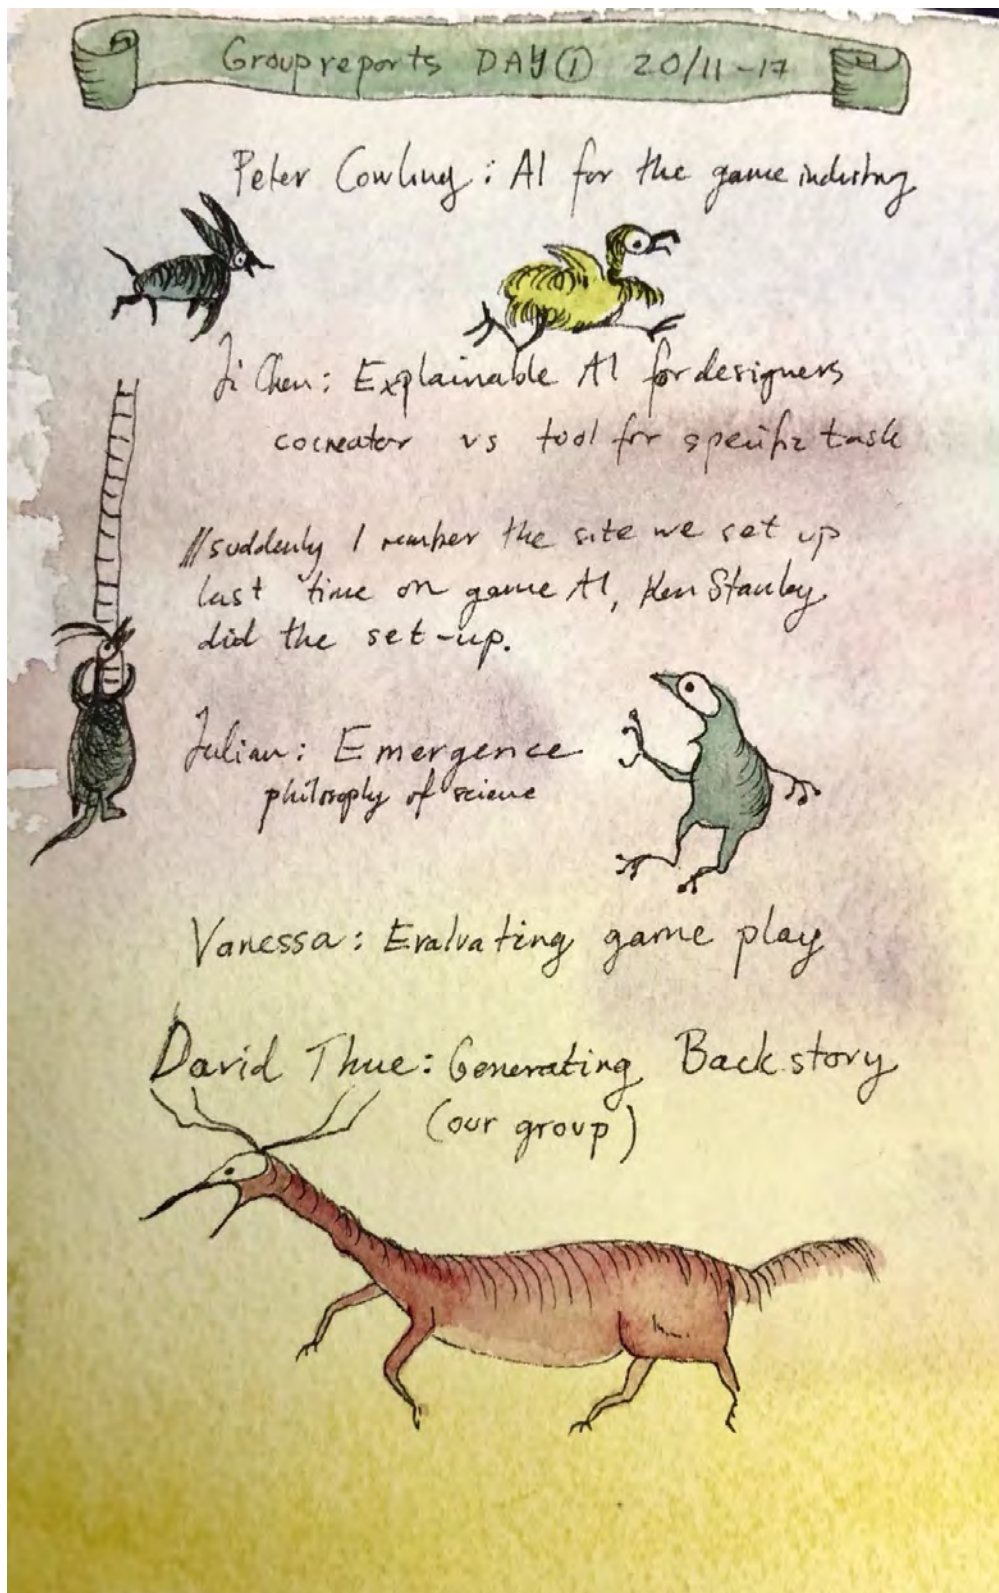 Groupreports DAY ① 20/11-17
Peter Cowling: AI for the game industry
Ji Chen: Explainable AI for designers
cocreator vs tool for specific task
//suddenly I rember the site we set up
last time on game AI, Ken Stanley
did the set-up.
Julian: Emergence
philosophy of science
Vanessa: Evalvating game play
David Thue: Generating Back story
(our group)